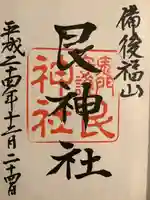 備後福山
艮神社
平成二十四年十二月二十四日